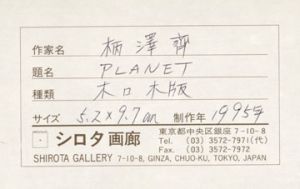 作家名 柄澤齊
題名 PLANET
種類 木口木版
サイズ 5.2×9.7cm 制作年 1995年
シロタ画廊
東京都中央区銀座7-10-8
Tel. (03) 3572-7971(代)
Fax. (03) 3572-7972
SHIROTA GALLERY 7-10-8, GINZA, CHUO-KU, TOKYO, JAPAN